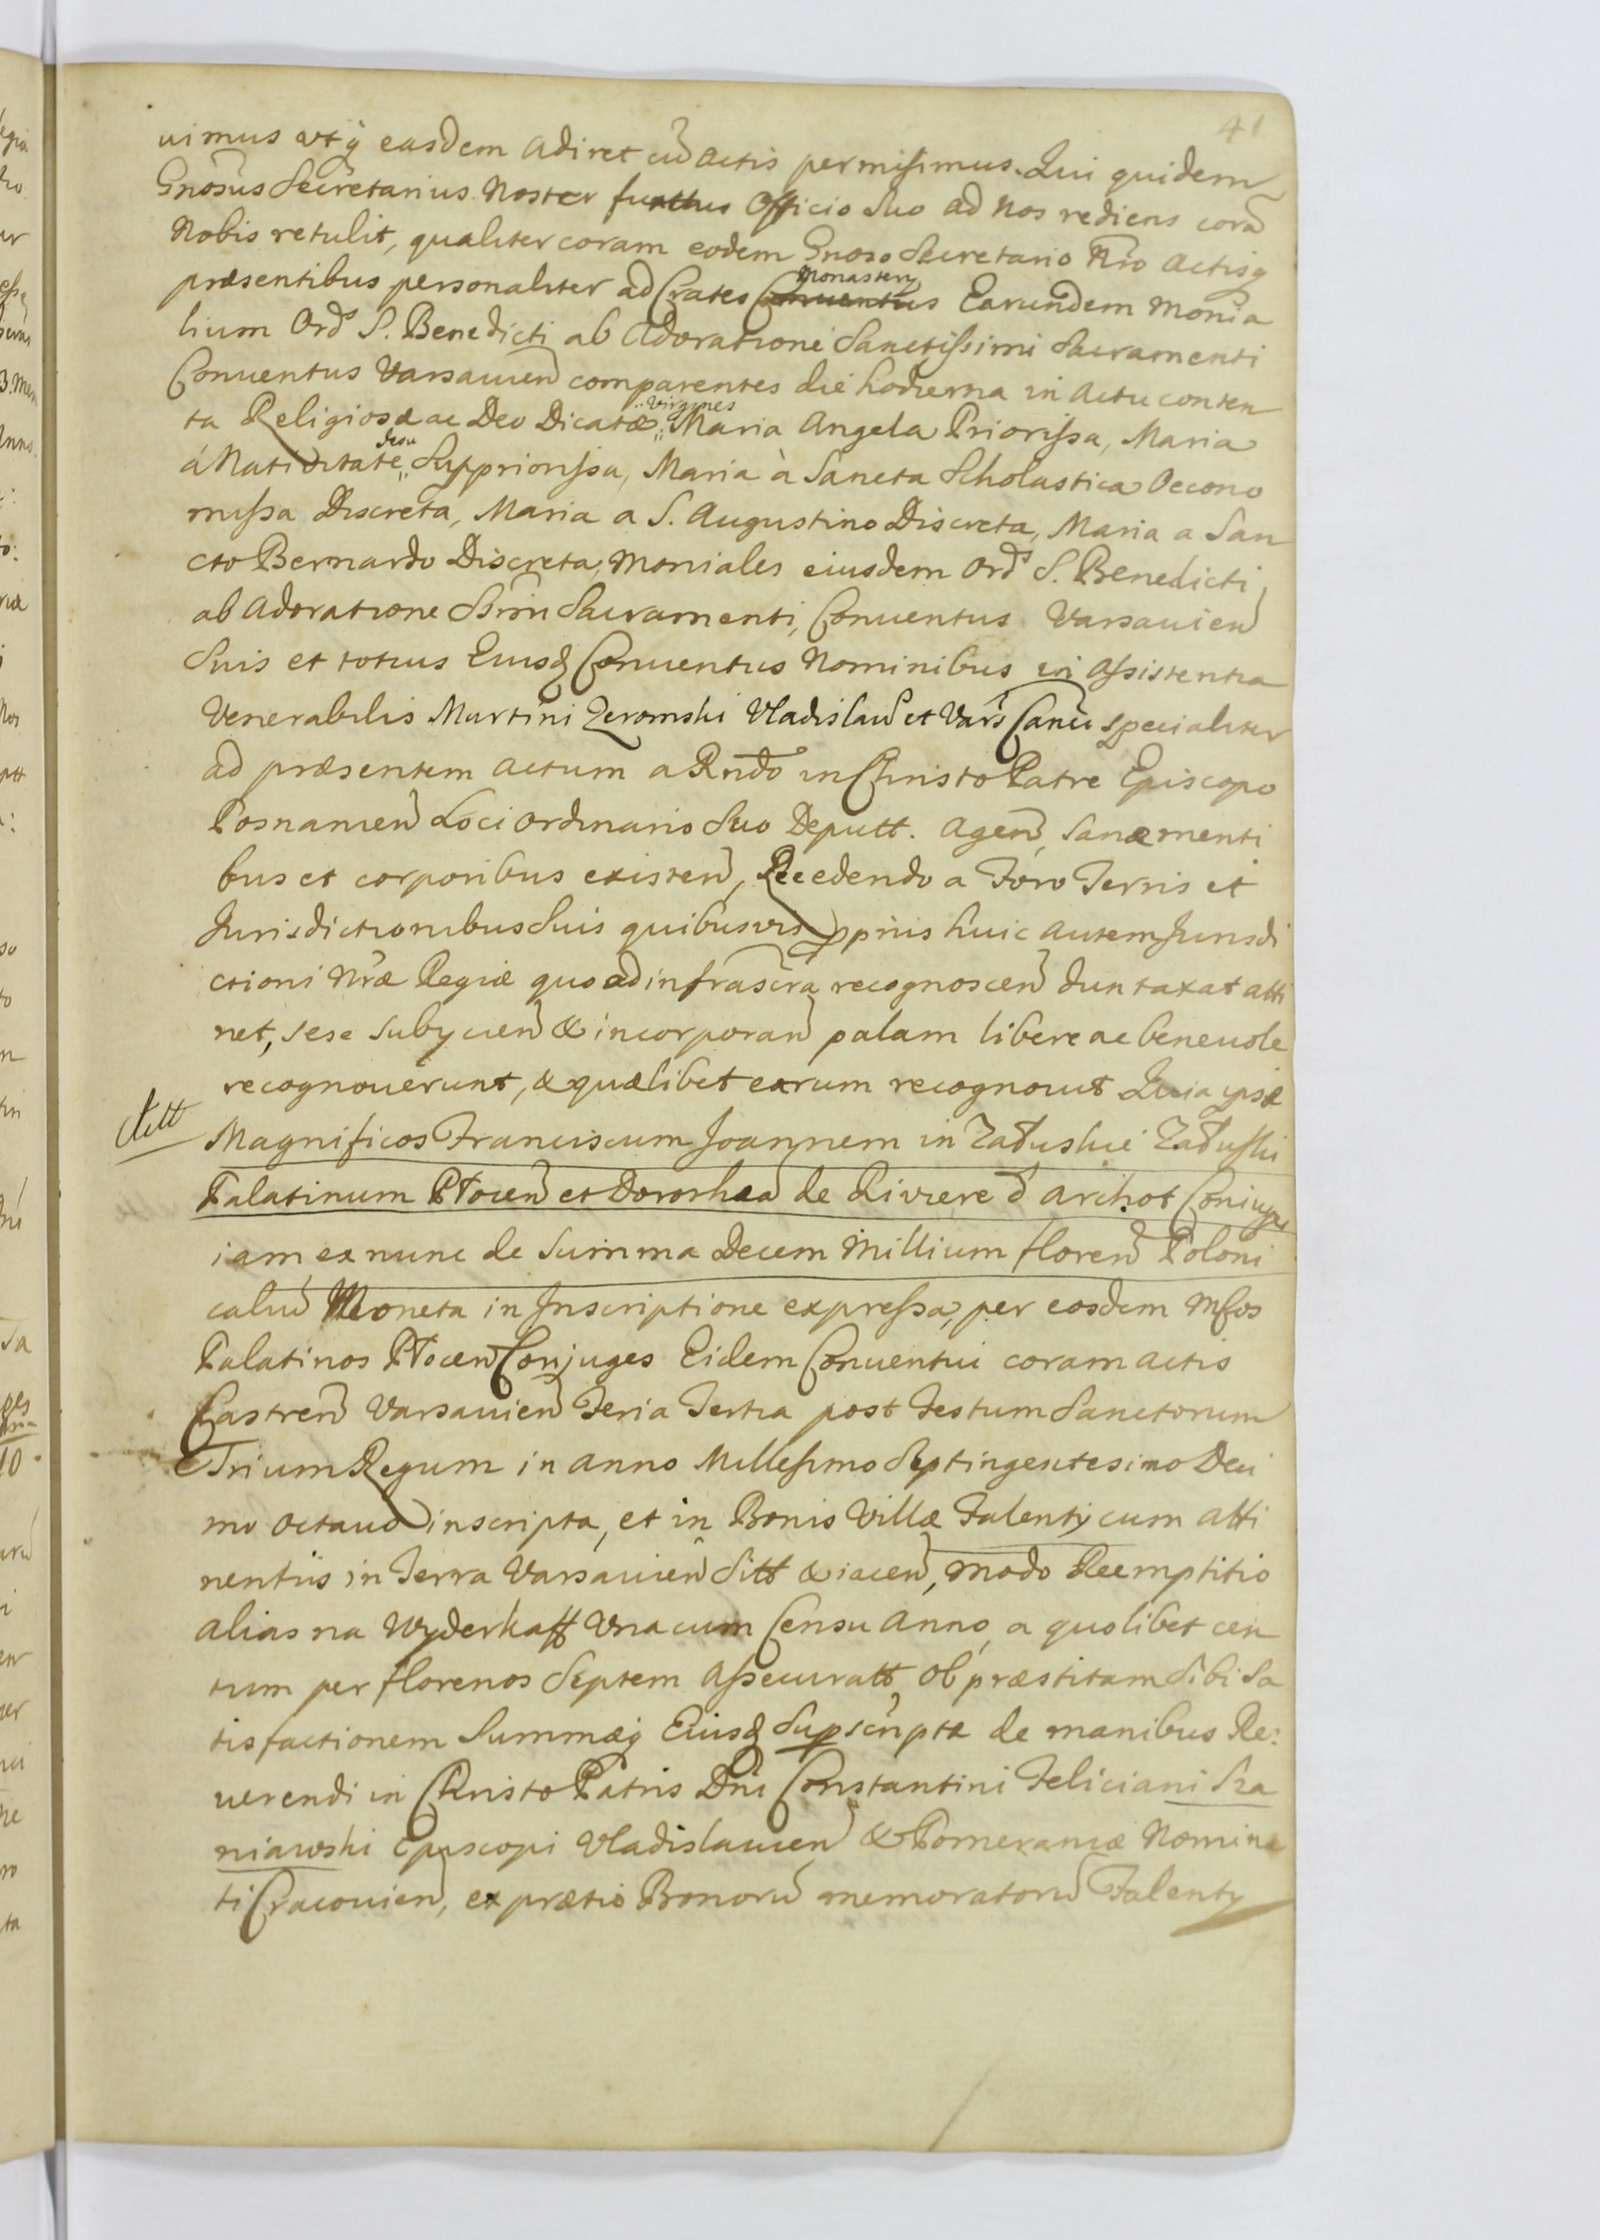 41
uimus utq̃ easdem adiret cũ actis permisimus. Qui quidem
Gnosus Secretarius Noster functus Officio Suo ad Nos rediens corã
Nobis retulit, qualiter coram eodem Gnoso Secretario Nr̃o actisq̃
præsentibus personaliter ad Crates Conuentus Monastery Earundem Monia
lium Ordˢ S. Benedicti ab Adoratione Sanctissimi Sacramenti
Conuentus Varsauien̄ comparentes die hodierna in actu conten
ta Religiosæ ac Deo Dicatæ Virgines Maria Angela Priorissa, Maria
á Natiuitate Jesu Supriorissa, Maria à Sancta Scholastica Oecono
missa Discreta, Maria a S. Augustino Discreta, Maria a San
cto Bernardo Discreta, Moniales eiusdem Ordˢ S. Benedicti
ab Adoratione Ssm̃i Sacramenti, Conuentus Varsauien̄
Suis et totius Eiusd̃ Conuentus Nominibus in assistentia
Venerabilis Martini Zeromski Vladislau̅ et Vars̃ Canĩ specialiter
ad præsentem actum a Rndõ in Christo Patre Episcopo
Posnanien̄ Loci Ordinario Suo Deputt. agen̄, Sanæ menti
bus et corporibus existen̄, Recedendo a Foro Terris et
Jurisdictionibus Suis quibusuis ppriis huic autem Jurisdi
ctioni Nr̃æ Regiæ quo ad infrascr̃a recognoscen̄ duntaxat atti
net, sese subycien̄ & incorporan̄ palam libere ac beneuole
recognouerunt, & quælibet earum recognouit Quia ipsæ
Magnificos Franciscum Joannem in Załuskie Załuski
Palatinum Płocen̄ et Dorotheã de Riviere d'archot Coniuges
iam ex nunc de Summa Decem Millium floren̄ Poloni
caliũ Moneta in Inscriptione expressa, per eosdem Mfcos
Palatinos Płocen̄ Conjuges Eidem Conuentui coram actis
Castren̄ Varsauien̄ Feria Tertia post Festum Sanctorum
Trium Regum in anno Millesimo Septingentesimo Deci
mo octauo inscripta, et in Bonis Villæ Falenty cum atti
nentiis in Terra Varsauien̄ Sitt & iacen̄, modo Reemptitio
alias na Wyderkaff Vna cum Censu Anno, a quolibet cen
tum per florenos Septem Assecuratt, Ob præstitam Sibi Sa
tisfactionem Summæq̃ Eiusd̃ Supscriptæ de manibus Re:
uerendi in Christo Patris Dni Constantini Feliciani Sza
niawski Episcopi Vladislauien̄ & Pomeraniæ Nomina
ti Cracouien̄, ex prætio Bonorũ memoratorũ Falenty